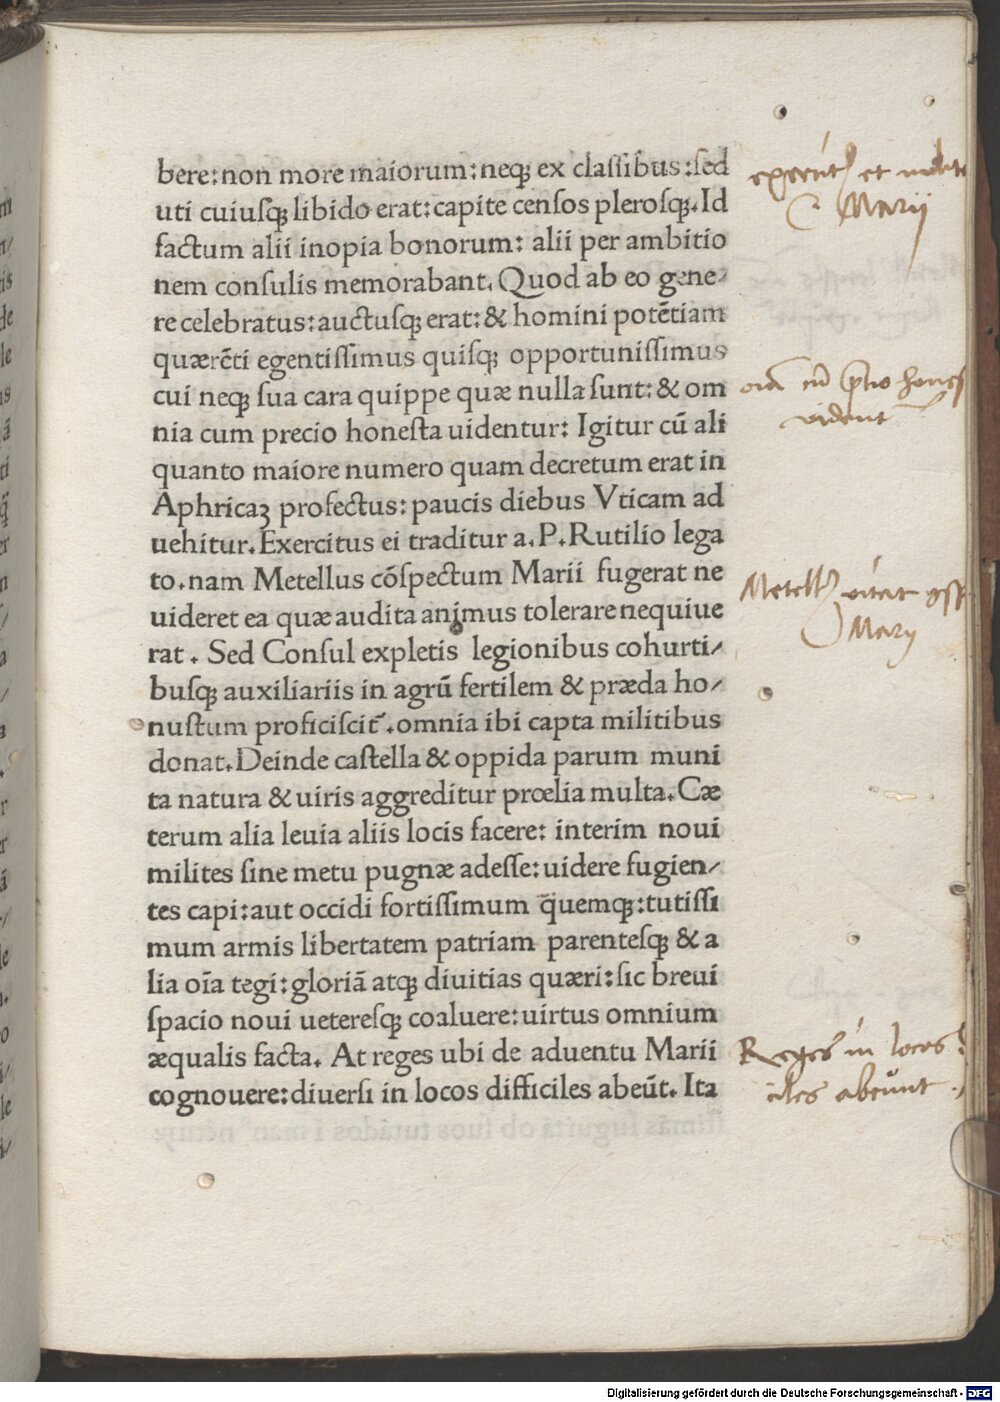 bere:non more maiorum:neqꝫ ex claſſibus:ſed
uti cuiuſqꝫ libido erat:capite cenſos pleroſqꝫ.Id
factum alii inopia bonorum: alii per ambitio
nem conſulis memorabant. Quod ab eo gene⸗
re celebratus:auctuſqꝫ erat:& homini potētiam
quærēti egentiſſimus quiſqꝫ opportuniſſimus
cui neqꝫ ſua cara quippe quæ nulla ſunt:& om
nia cum precio honeſta uidentur: Igitur cū ali
quanto maiore numero quam decretum erat in
Aphricaꝫ profectus: paucis diebus Vticam ad
uehitur.Exercitus ei traditur a.P.Rutilio lega
to.nam Metellus cōſpectum Marii fugerat ne
uideret ea quæ audita animus tolerare nequiue
rat. Sed Conſul expletis legionibus cohurti⸗
buſqꝫ auxiliariis in agrū fertilem & præda ho⸗
nuſtum proficiſcit᷑.omnia ibi capta militibus
donat.Deinde caſtella & oppida parum muni
ta natura & uiris aggreditur prœlia multa.Cæ
terum alia leuia aliis locis facere: interim noui
milites ſine metu pugnæ adeſſe:uidere fugien⸗
tes capi:aut occidi fortiſſimum q̄uemqꝫ:tutiſſi
mum armis libertatem patriam parenteſqꝫ & a
lia oīa tegi:gloriā atqꝫ diuitias quæri:ſic breui
ſpacio noui uetereſqꝫ coaluere:uirtus omnium
æqualis facta. At reges ubi de aduentu Marii
cognouere:diuerſi in locos difficiles abeūt. Ita
et
C. Marii
vident
Metell᷒ vitat
Marii
Reges in locos
iles abeunt
Digitalisierung gefördert durch die Deutsche Forschungsgemeinschaft - DFG